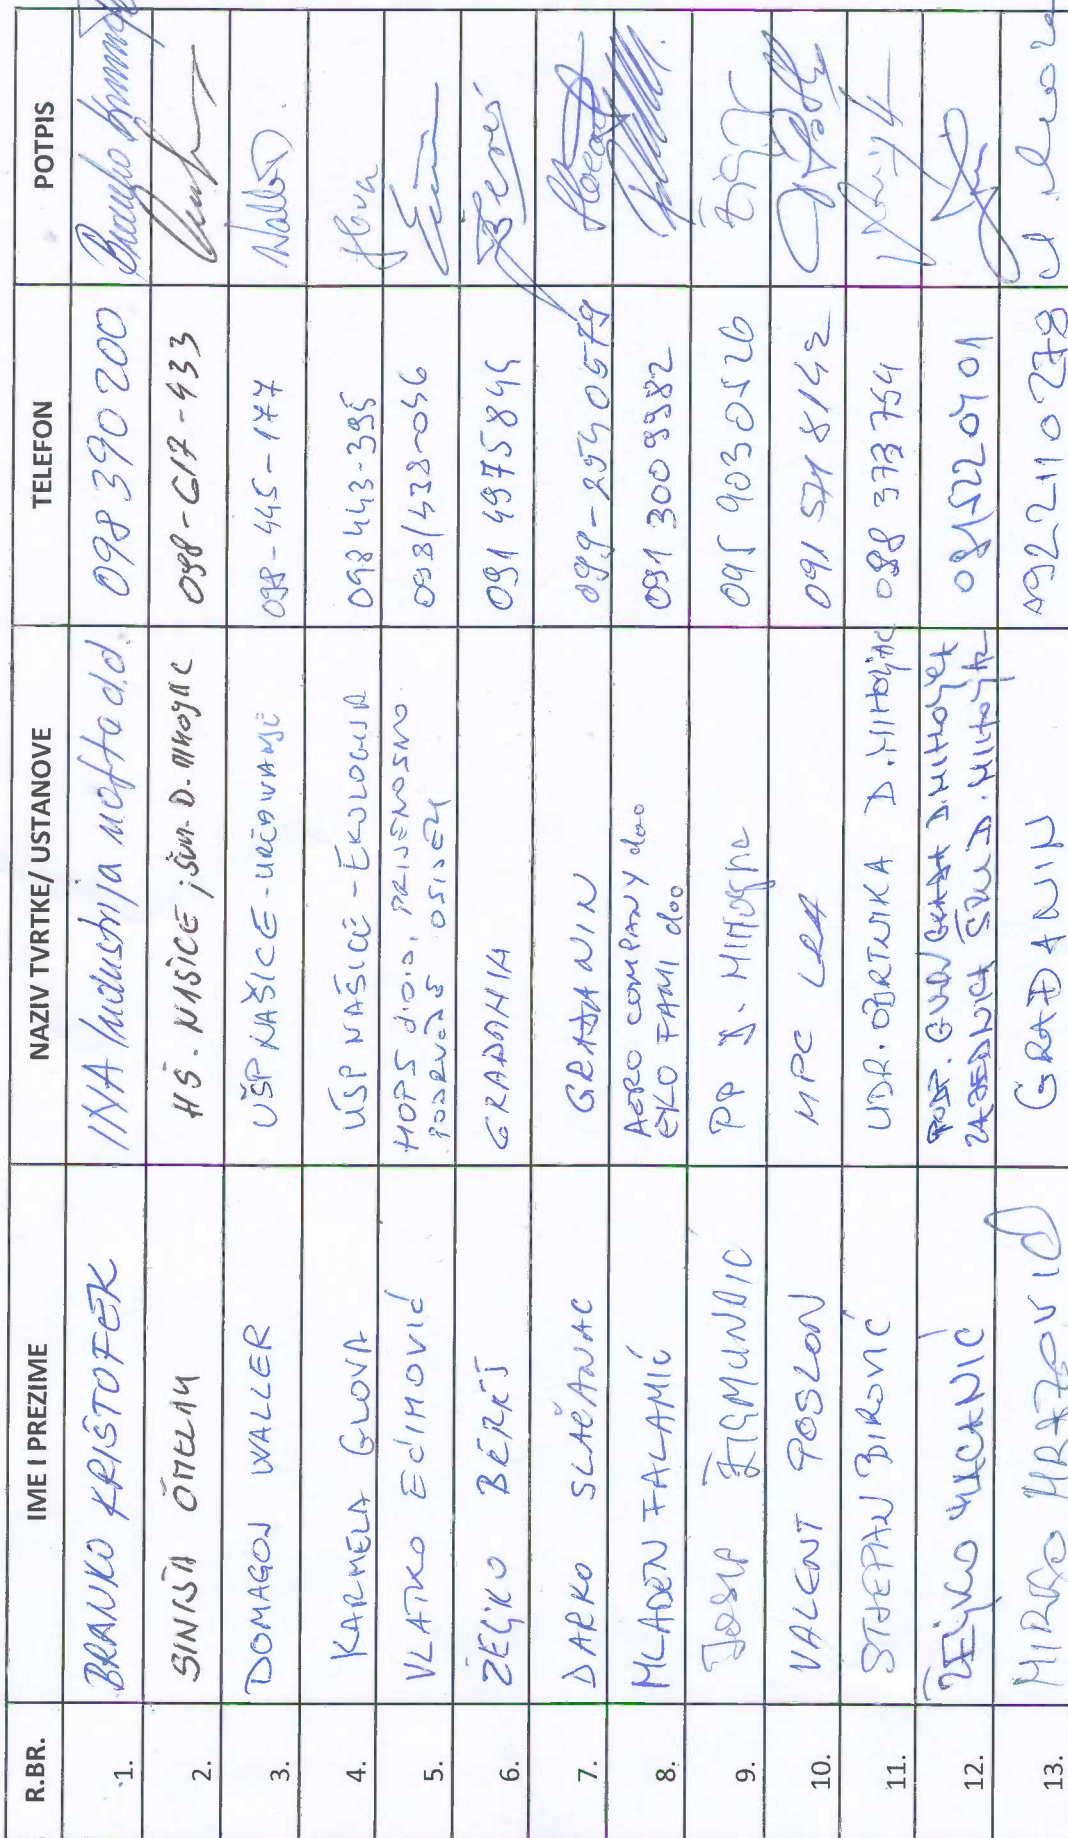 R.BR. IME I PREZIME NAZIV TVRTKE/ USTANOVE TELEFON POTPIS
1. BRANKO KRIŠTOFEK INA Industrija nafte d.d. 098 390 200
2. SINIŠA HŠ. NAŠICE; šum. D. MIHOLJAC 098-617-433
3. DOMAGOJ WALLER UŠP NAŠICE - UREĐIVANJE 098-445-177 Waller
4. KARMELA GLOVA UŠP NAŠICE - EKOLOGIJA 098 443-395
5. VLATKO EDIMOVIĆ HOPS d.o.o. PRIJENOSNO
PODRUČJE OSIJEK 098/438-046
6. ŽELJKO GRAĐANIN 091 4975844
7. DARKO GRAĐANIN 099-2540579
8. MLADEN FALAMIĆ AERO COMPANY doo
EKO FAMI doo 091 3009982
9. JOSIP ŽIGMUNDIĆ PP D. MIHOLJAC 095 9030526
10. VALENT POSLON MPC 091 571 8142
11. STJEPAN BIROVIĆ UDR. OBRTNIKA D. MIHOLJAC 098 373 754
12. ŽELJKO D. MIHOLJCA
ZAJEDNICA ŠRU D. MIHOLJAC
13. MIRKO MRAZOVIĆ GRAĐANIN 0922110278